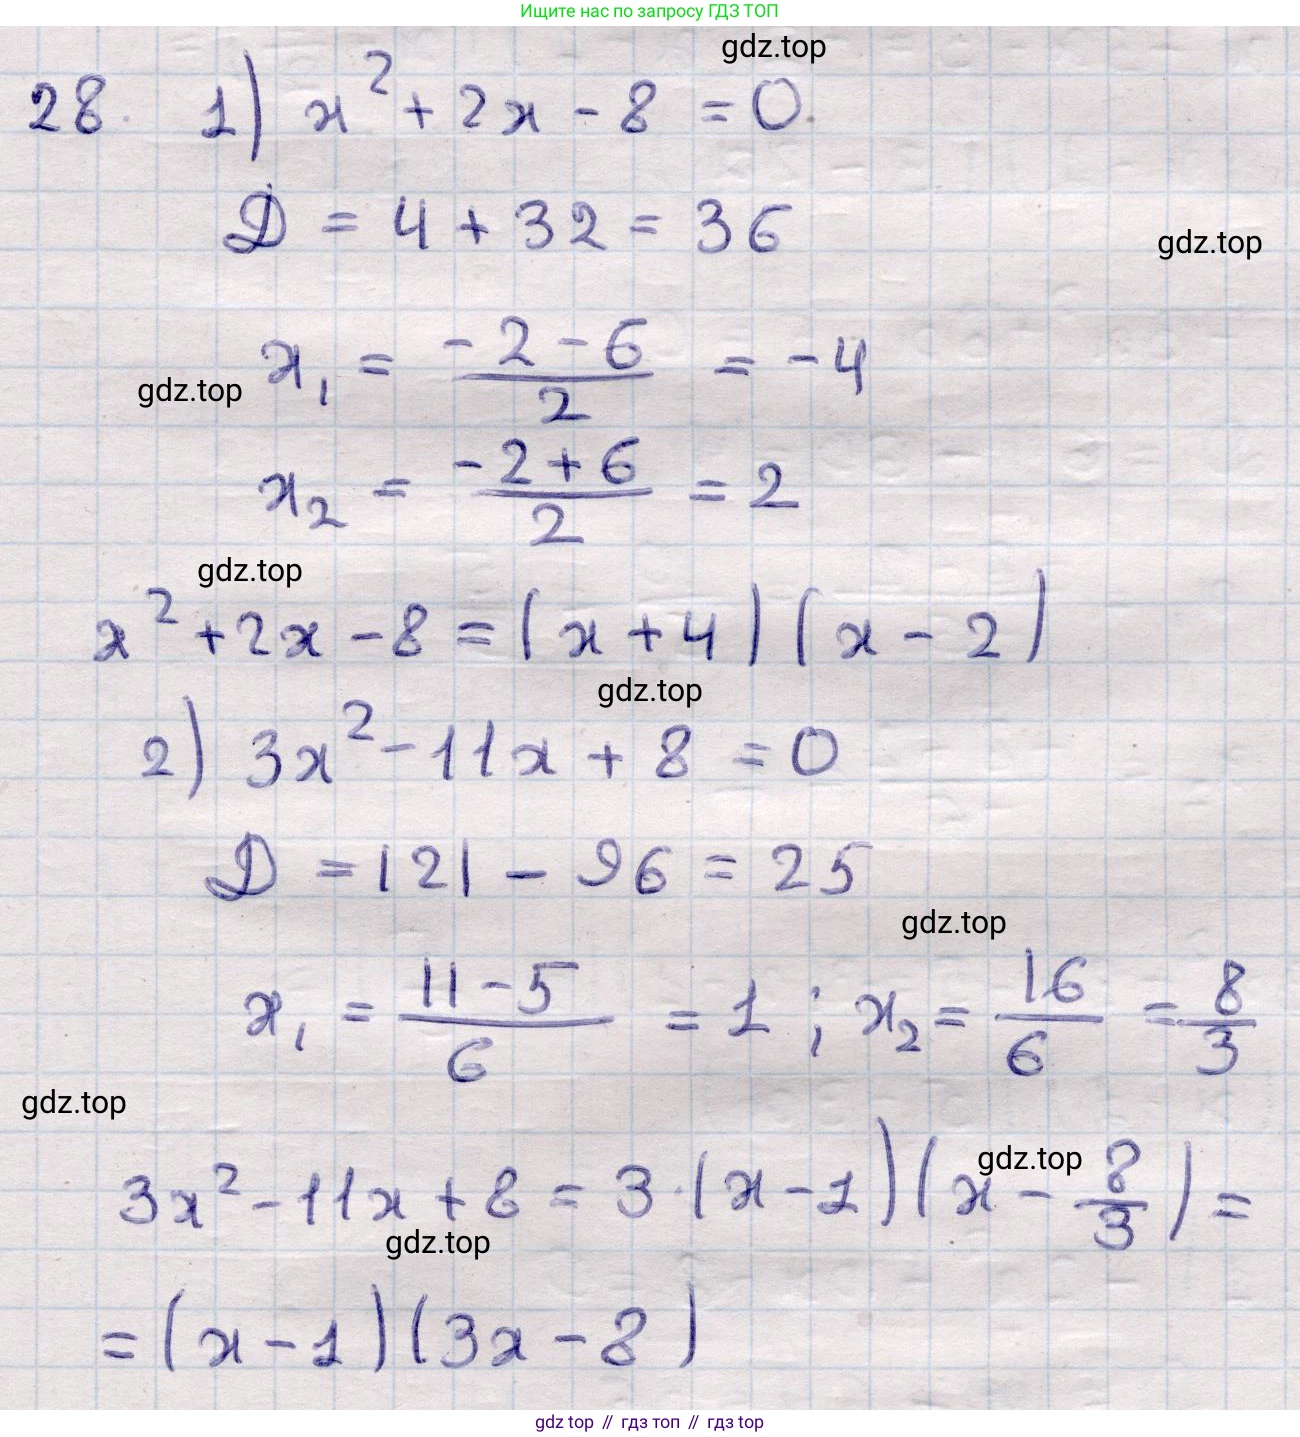 Ищите нас по запросу ГДЗ ТОП
gdz.top
28. 1) x² + 2x - 8 = 0
Д = 4 + 32 = 36
gdz.top
x₁ = (-2 - 6)/2 = -4
gdz.top
x₂ = (-2 + 6)/2 = 2
gdz.top
x² + 2x - 8 = (x + 4)(x - 2)
gdz.top
2) 3x² - 11x + 8 = 0
Д = 121 - 96 = 25
gdz.top
x₁ = (11 - 5)/6 = 1 ; x₂ = 16/6 = 8/3
gdz.top
3x² - 11x + 8 = 3·(x - 1)(x - 8/3) =
gdz.top
gdz.top
= (x - 1)(3x - 8)
gdz top // гдз топ // гдз top